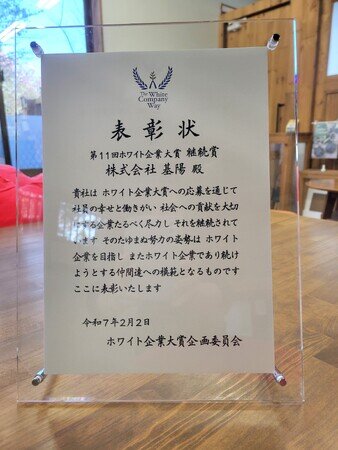 The White
Company
Way
表彰状
第11回ホワイト企業大賞 継続賞
株式会社 基陽 殿
貴社は ホワイト企業大賞への応募を通じて
社員の幸せと働きがい 社会への貢献を大切
にする企業たるべく尽力し それを継続されて
います そのたゆまぬ努力の姿勢は ホワイト
企業を目指し またホワイト企業であり続け
ようとする仲間達への模範となるものです
ここに表彰いたします
令和7年2月2日
ホワイト企業大賞企画委員会